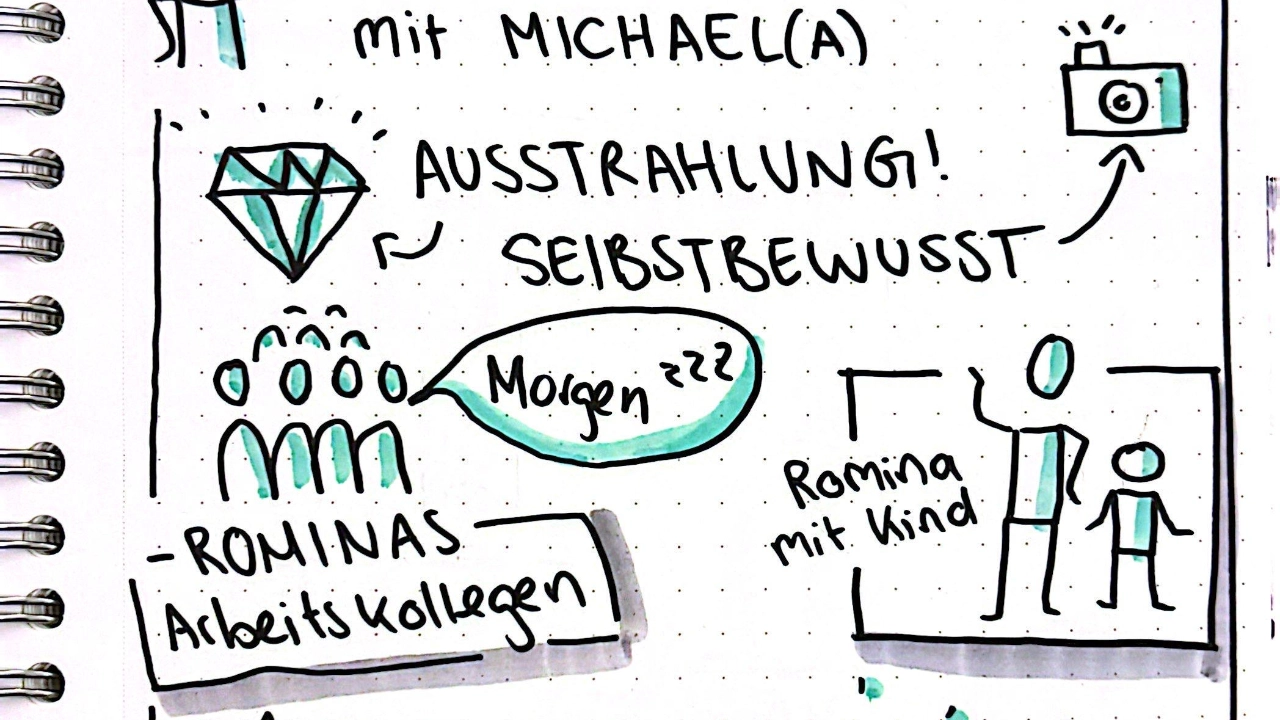 mit MICHAEL(A)
AUSSTRAHLUNG!
SELBSTBEWUSST
Morgen zzz
Romina
mit Kind
-ROMINAS
Arbeitskollegen